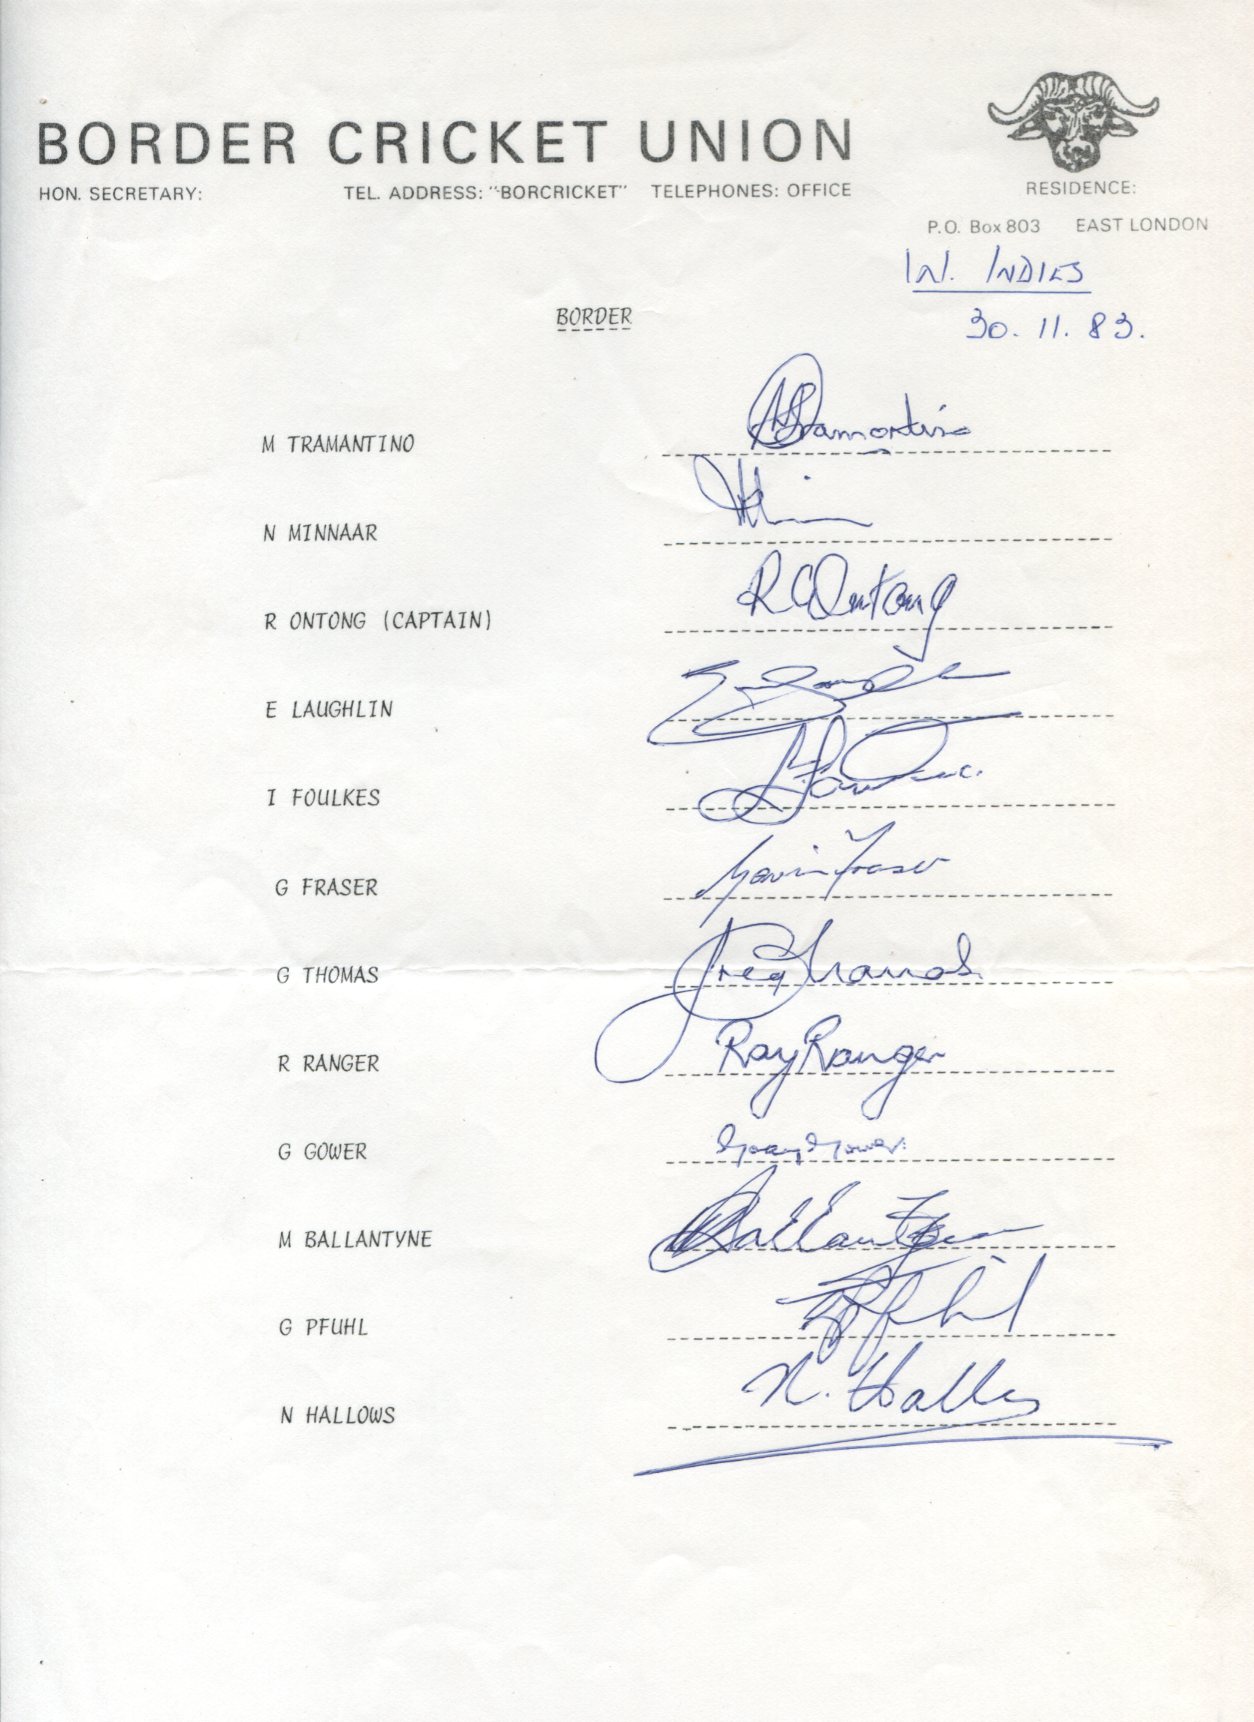 BORDER CRICKET UNION
HON. SECRETARY: TEL. ADDRESS: "BORCRICKET" TELEPHONES: OFFICE RESIDENCE:
P.O. Box 803 EAST LONDON
W. INDIES
BORDER
30.11.83.
M TRAMANTINO
N MINNAAR
R ONTONG (CAPTAIN) R C Ontong
E LAUGHLIN
I FOULKES
G FRASER Gavin Fraser
G THOMAS Greg Thomas
R RANGER Ray Ranger
G GOWER Gary Gower
M BALLANTYNE Ballantyne
G PFUHL
N HALLOWS N. Hallows